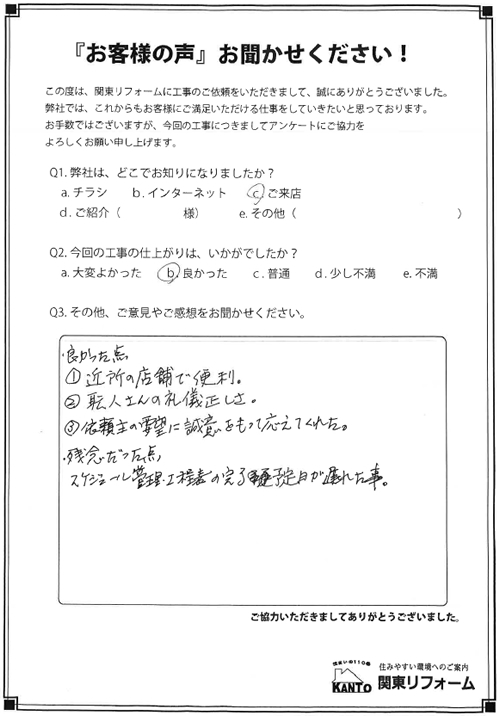 『お客様の声』お聞かせください！
この度は、関東リフォームに工事のご依頼をいただきまして、誠にありがとうございました。
弊社では、これからもお客様にご満足いただける仕事をしていきたいと思っております。
お手数ではございますが、今回の工事につきましてアンケートにご協力を
よろしくお願い申し上げます。
Q1. 弊社は、どこでお知りになりましたか？
a. チラシ b. インターネット c. ご来店
d. ご紹介（ 様） e. その他（ ）
Q2. 今回の工事の仕上がりは、いかがでしたか？
a. 大変よかった b. 良かった c. 普通 d. 少し不満 e. 不満
Q3. その他、ご意見やご感想をお聞かせください。
・良かった点
① 近所の店舗で便利。
② 職人さんの礼儀正しさ。
③ 依頼主の要望に誠意をもって応えてくれた。
・残念だった点
スケジュール管理・工程表の完了予定日が遅れた事。
ご協力いただきましてありがとうございました。
住まいの110番
KANTO
住みやすい環境へのご案内
関東リフォーム